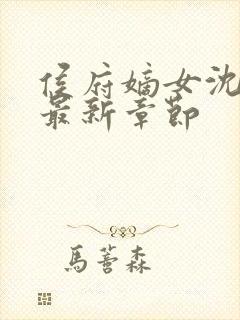 侯府嫡女沈
最新章节
馬蕾森